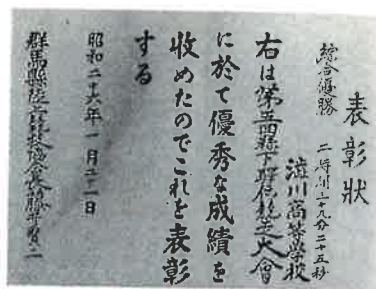 表彰状
綜合優勝 二時間二十九分二十五秒
澁川高等学校
右は第五回縣下駅伝競走大會
に於て優秀な成績を
收めたのでこれを表彰
する
昭和二十六年一月二十一日
群馬縣陸上競技協会長